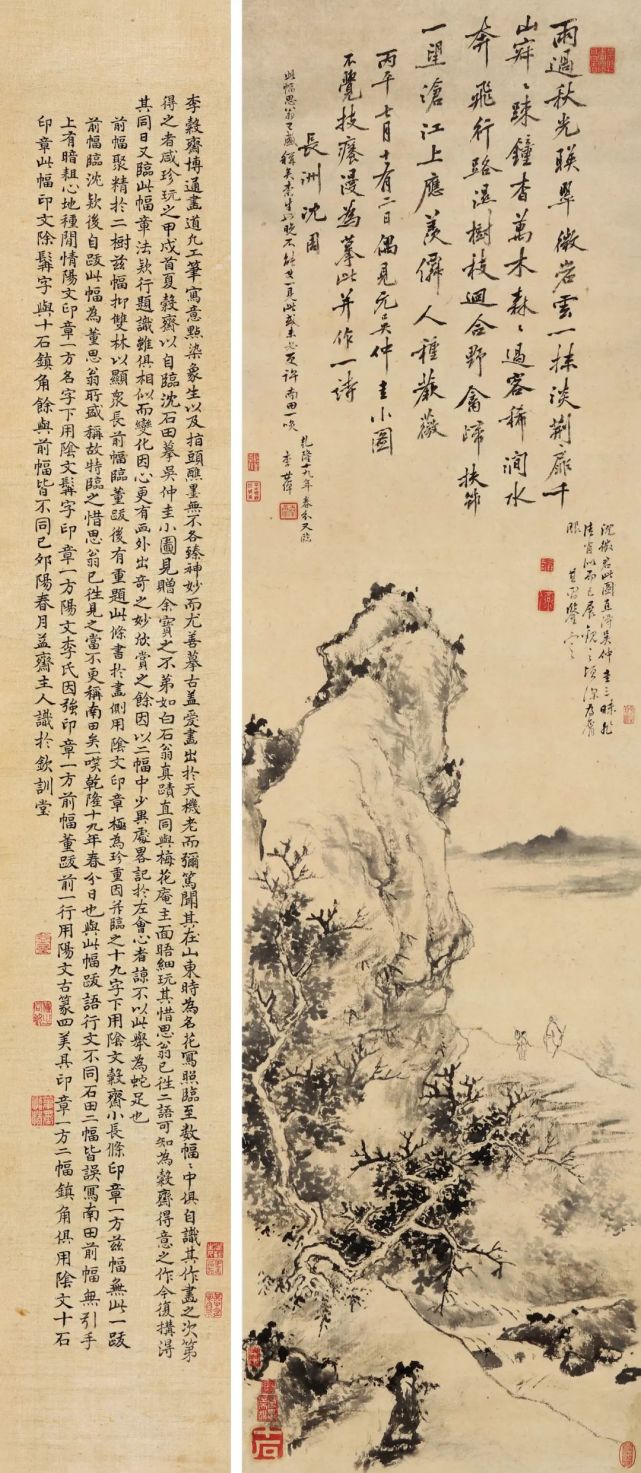 雨過秋光睽翠微岩雲一抹淡荆扉千
山寂〻踈鐘杳萬木森〻過客稀澗水
奔飛行路濕樹枝迴合野禽歸扶筇
一望滄江上應羨僊人種蕨薇
丙午七月十有二日偶見元吳仲圭小圖
不覺技癢漫為摹此并作一詩
長洲沈周
此幅思翁
乾隆十九年春分又臨
李世倬
沈徵君此圖直得吳仲圭三昧
李穀齋博通畫道凢工筆寫意點染象生以及指頭醮墨無不各臻神妙而尤善摹古盖愛畫出於天機老而彌篤聞其在山東時為名花寫照臨至数幅〻中俱自識其作畫之次第
得之者咸珍玩之甲戌首夏穀齋以自臨沈石田摹吳仲圭小圖見贈余寶之不弟如白石翁真蹟直同與梅花庵主面晤細玩其惜思翁已徃二語可知為穀齋得意之作今復搆淂
其同日又臨此幅章法欵行題識雖俱相似而變化因心更有画外出奇之妙欣賞之餘因以二幅中少異處畧記於左會心者諒不以此舉為蛇足也
前幅聚精於二樹兹幅抑雙林以顯衆長前幅臨董跋後有重題此條書於畫側用陰文印章極為珍重因并臨之十九字下用陰文穀齋小長條印章一方兹幅無此一跋
前幅臨沈欵後自跋此幅為董思翁所盛稱故特臨之惜思翁已徃見之當不更稱南田矣一噗乾隆十九年春分日也與此幅跋語行文不同石田二幅皆誤寫南田前幅無引手
上有暗粗心地種閒情陽文印章一方名字下用陰文髯字印章一方陽文李氏因強印章一方前幅董跋前一行用陽文古篆四美具印章一方二幅鎮角俱用陰文十石
印章此幅印文除髯字與十石鎮角餘與前幅皆不同已邜陽春月益齋主人識於欽訓堂
十石